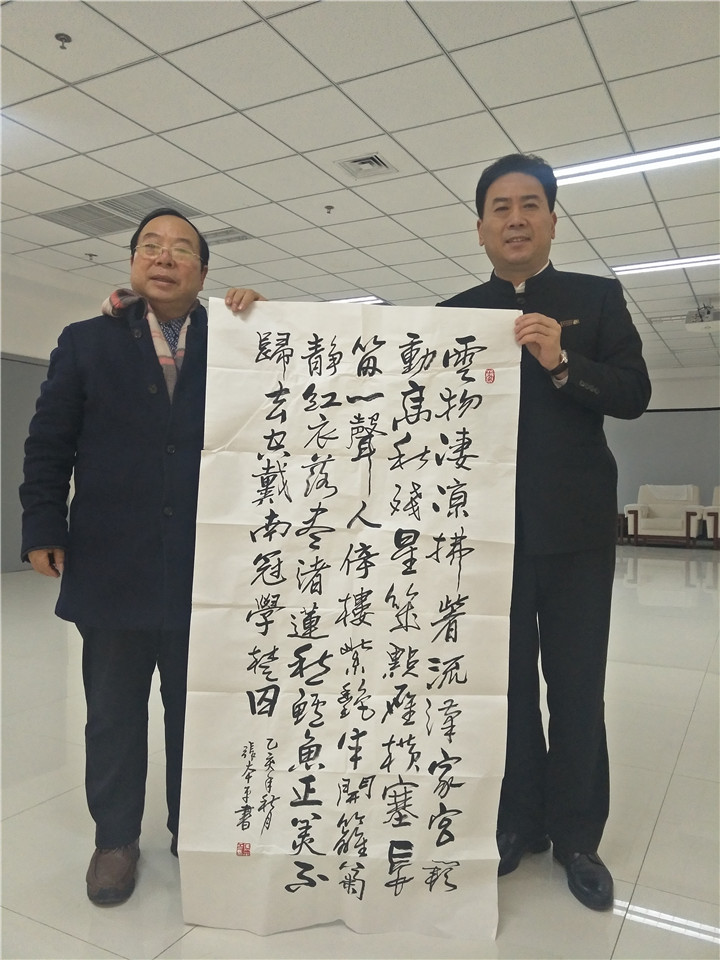 雲物淒涼拂曙流漢家宮闕
動高秋殘星幾點雁橫塞長
笛一聲人倚樓紫艷半開籬菊
靜紅衣落盡渚蓮愁鱸魚正美不
歸去空戴南冠學楚囚
己亥年秋月
張本平書